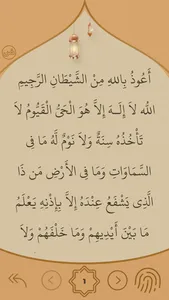 أَعُوذُ بِاللهِ مِنَ الشَّيْطَانِ الرَّجِيمِ
اللهُ لاَ إِلَـهَ إِلاَّ هُوَ الْحَيُّ الْقَيُّومُ لاَ
تَأْخُذُهُ سِنَةٌ وَلاَ نَوْمٌ لَّهُ مَا فِي
السَّمَاوَاتِ وَمَا فِي الأَرْضِ مَن ذَا
الَّذِي يَشْفَعُ عِنْدَهُ إِلاَّ بِإِذْنِهِ يَعْلَمُ
مَا بَيْنَ أَيْدِيهِمْ وَمَا خَلْفَهُمْ وَلاَ
1